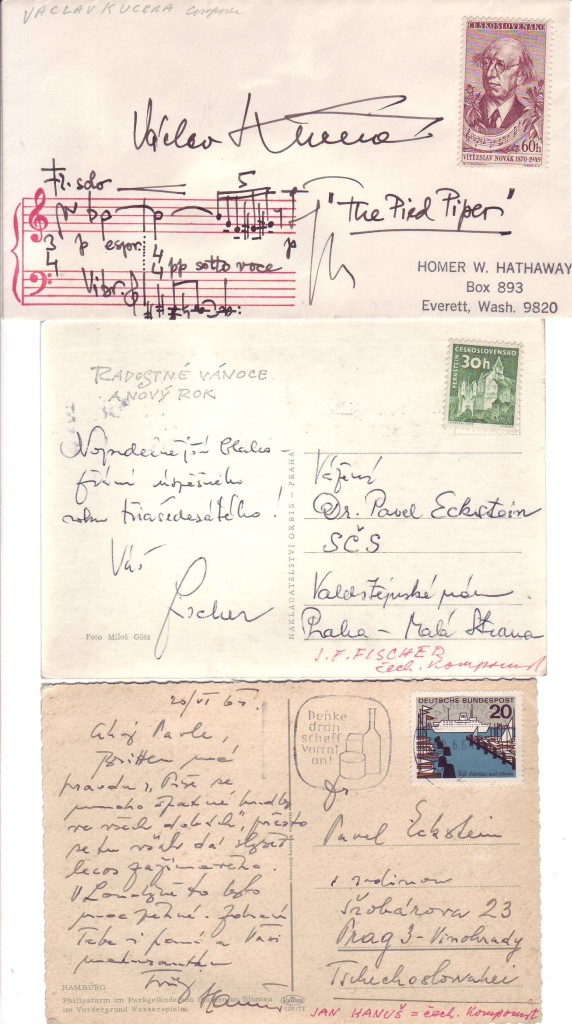 VACLAV KUCERA Composer
ČESKOSLOVENSKO
60h
VÍTĚZSLAV NOVÁK 1870-1949
Václav Kučera
Fl. solo
5
pp
"The Pied Piper"
3
4
p espr.
4
4
pp sotto voce
p
Vibr.
HOMER W. HATHAWAY
Box 893
Everett, Wash. 9820
RADOSTNÉ VÁNOCE
A NOVÝ ROK
ČESKOSLOVENSKO
30h
PERNŠTEJN
roku třiašedesátého!
Váš
Fischer
Foto Miloš
NAKLADATELSTVÍ ORBIS — PRAHA
Vážený
Dr. Pavel Eckstein
SČS
Valdštejnské nám.
Praha — Malá Strana
J. F. FISCHER
čech. Komponist
20/VI 64.
Ahoj Pavle,
Britten má
pravdu, "Píše se
mnoho špatné hudby
ve všech dobách", přesto
se tu však dá slyšet
lecos zajímavého.
V Londýně to bylo
moc pěkné. Zdraví
Tebe i paní a Vaši
Hanuš
Denke
dran
schaff
vorrat
an!
DEUTSCHE BUNDESPOST
20
Dr.
Pavel Eckstein
s rodinou
Šrobárova 23
Prag 3 - Vinohrady
Tschechoslowakei
HAMBURG
Philipsturm im Parkgelände von Planten un Blomen
im Vordergrund Wasserspiele
JAN HANUŠ = čech. Komponist